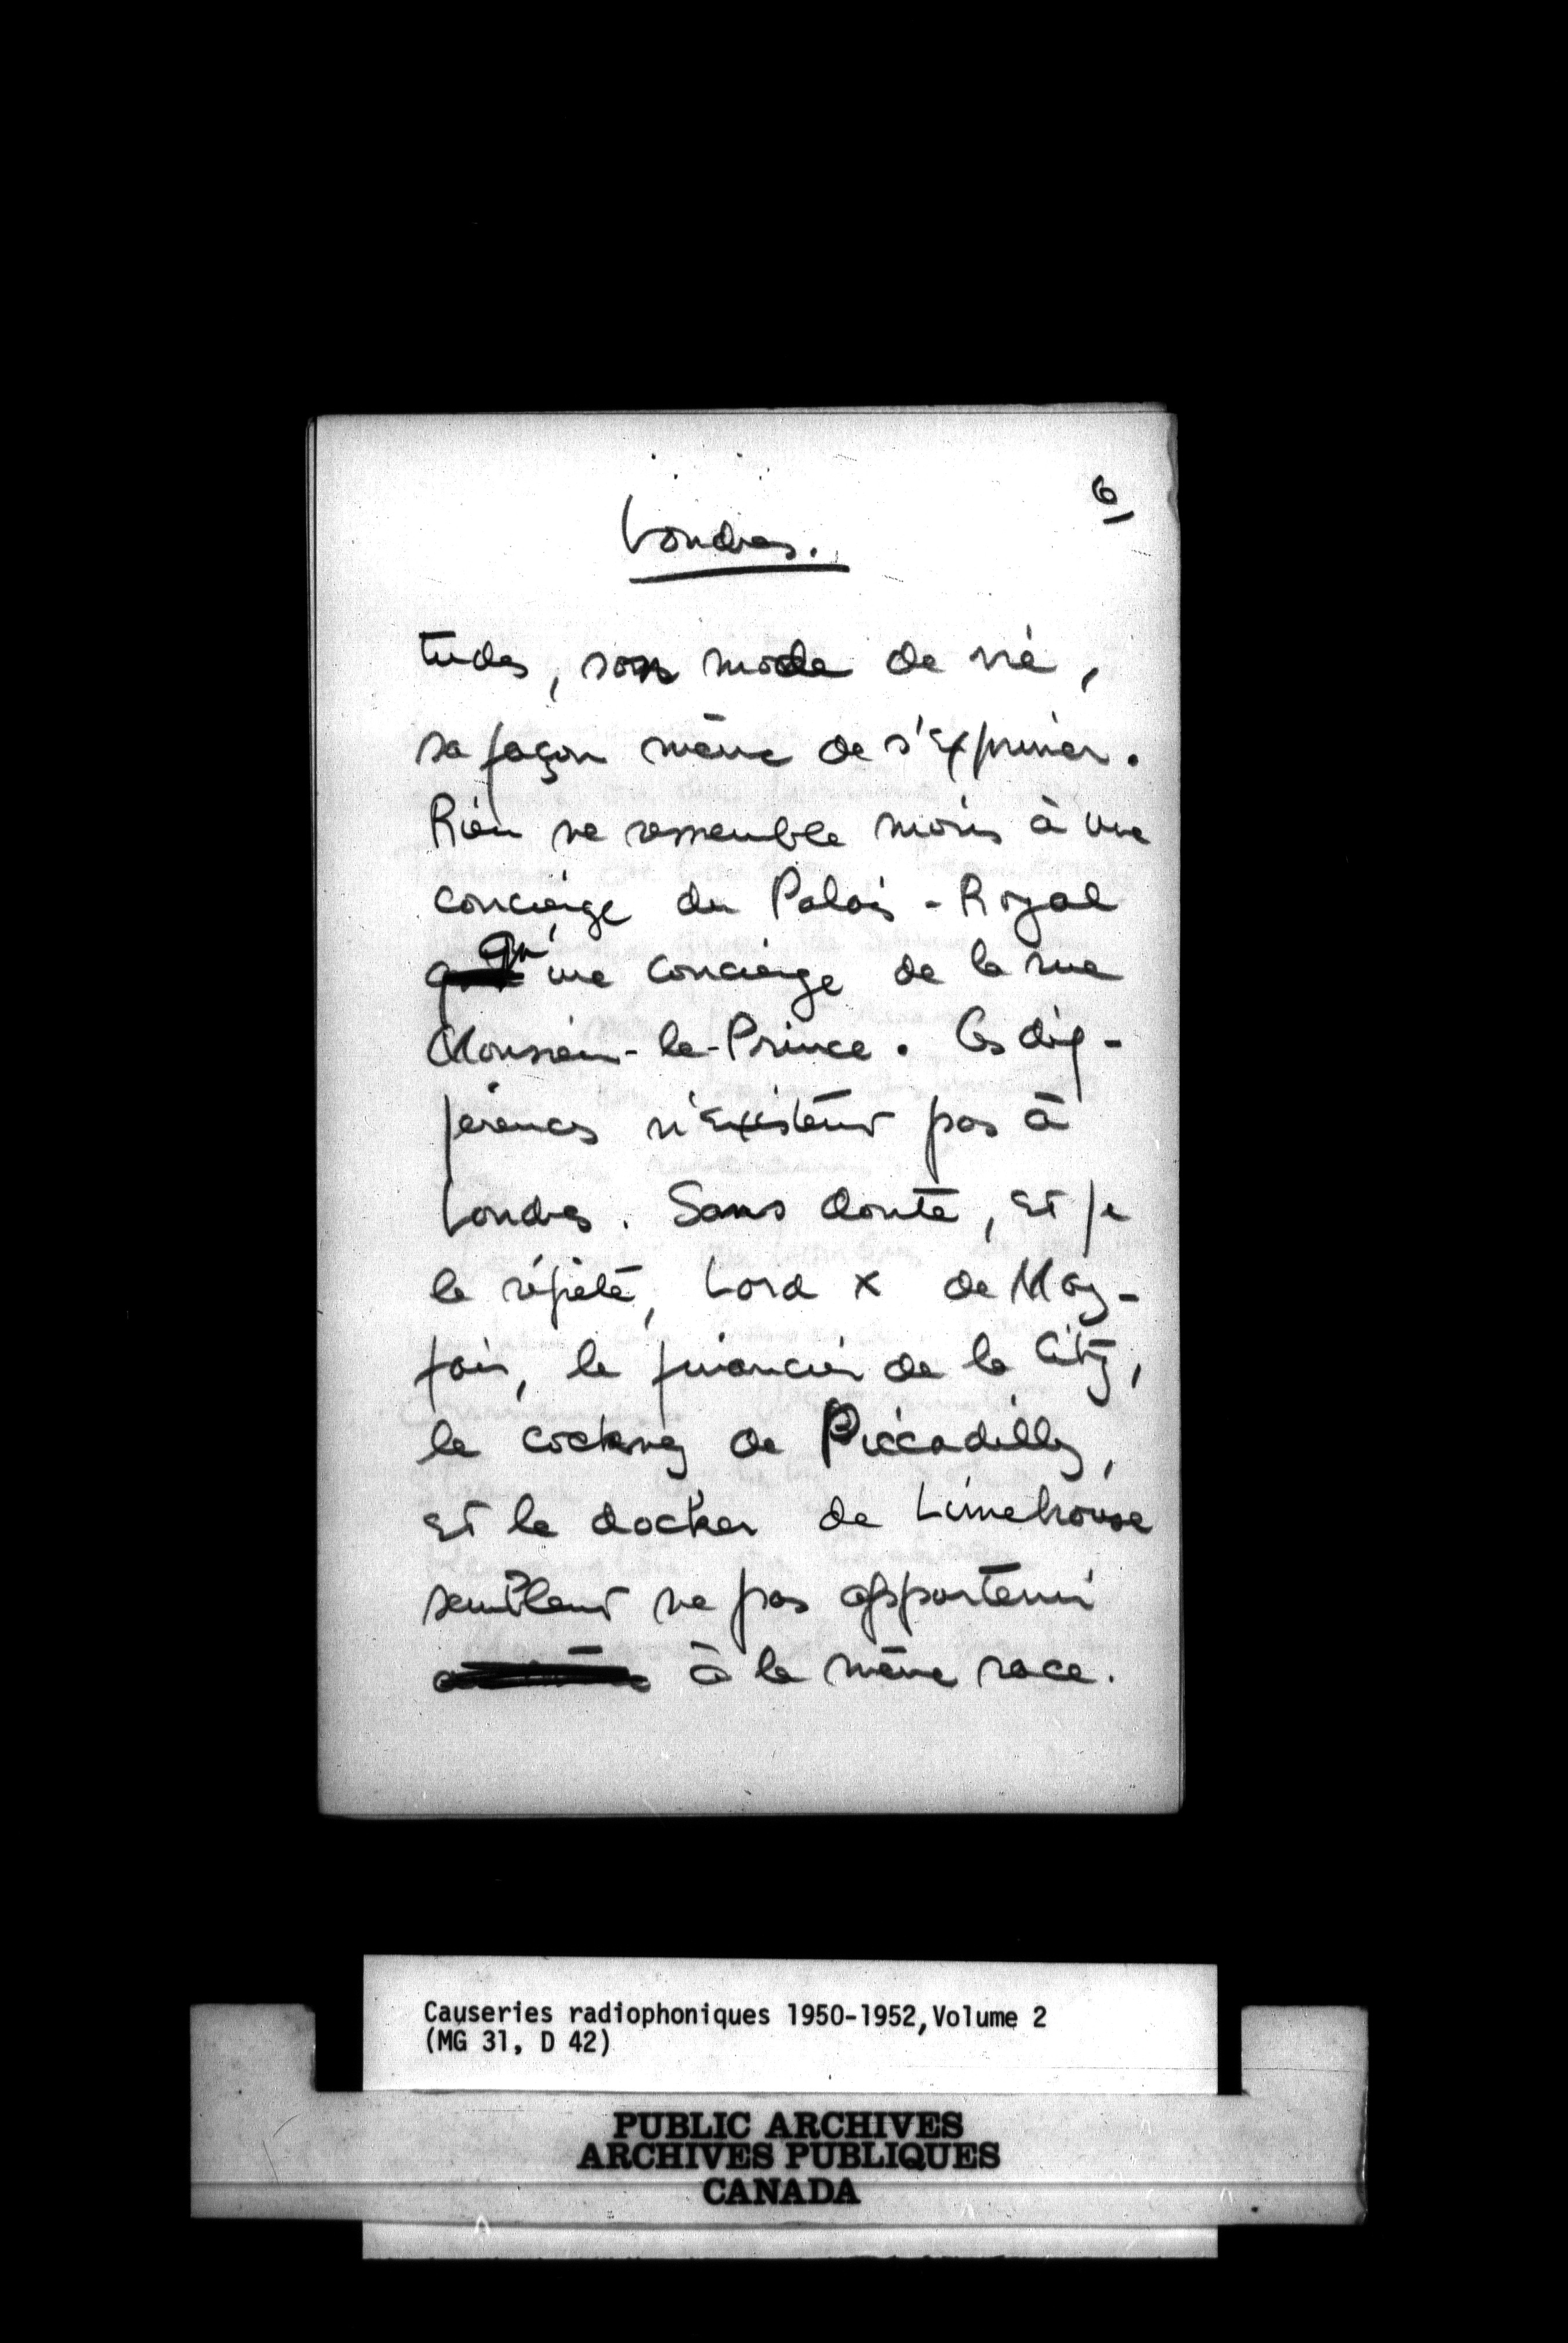 6
Londres.
tudes, son mode de vie,
sa façon même de s'exprimer.
Rien ne ressemble moins à une
concierge du Palais-Royal
qu'une concierge de la rue
Monsieur-le-Prince. Ces dif-
férences n'existent pas à
Londres. Sans doute, et je
le répète, Lord X de May-
fair, le financier de la City,
le cockney de Piccadilly,
et le docker de Limehouse
semblent ne pas appartenir
à la même race.
Causeries radiophoniques 1950-1952, Volume 2
(MG 31, D 42)
PUBLIC ARCHIVES
ARCHIVES PUBLIQUES
CANADA